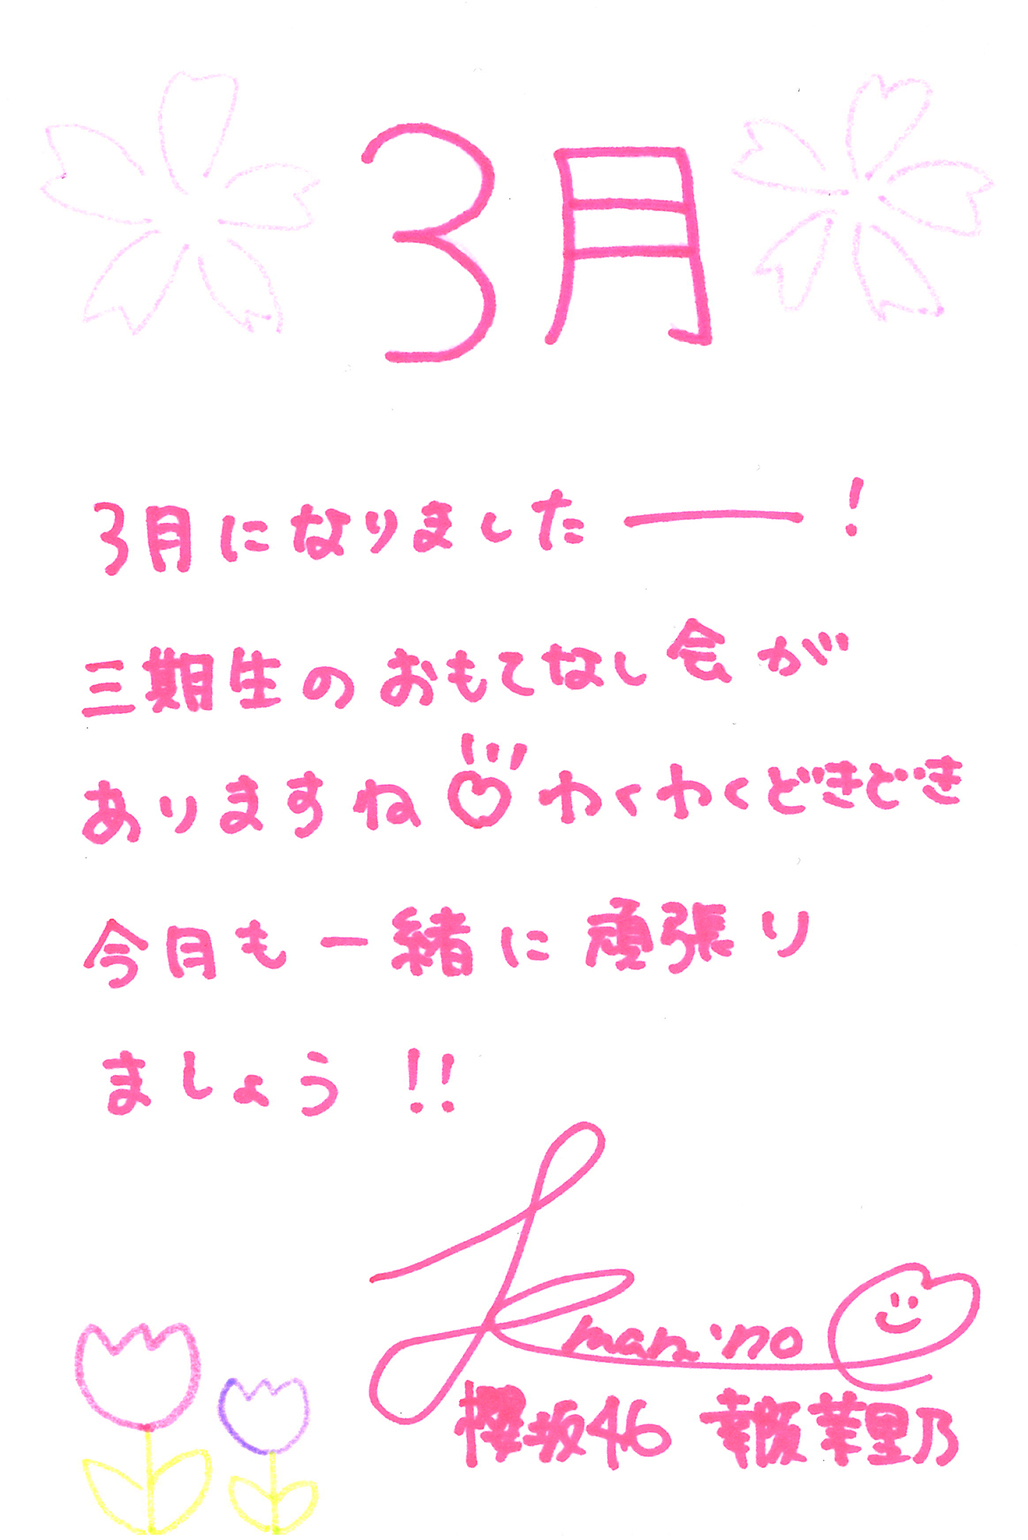 3月
3月になりましたーー！
三期生のおもてなし会が
ありますね わくわくどきどき
今月も一緒に頑張り
ましょう！！
marino
櫻坂46 幸阪茉里乃